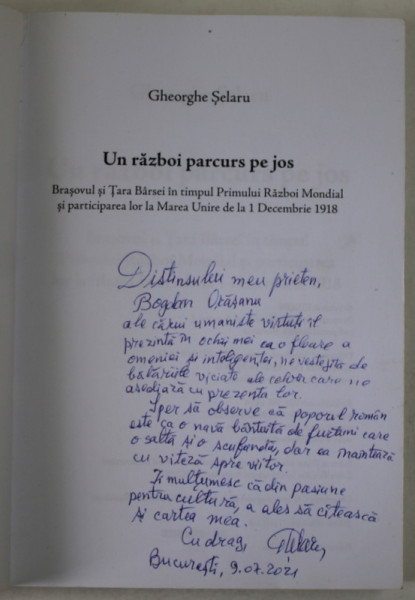 Gheorghe Șelaru
Un război parcurs pe jos
Brașovul și Țara Bârsei în timpul Primului Război Mondial
și participarea lor la Marea Unire de la 1 Decembrie 1918
Distinsului meu prieten,
Bogdan
ale cărui umaniste virtuți îl
prezintă în ochii mei ca o floare a
omeniei și inteligenței, neveștejită de
bătăriile viciate ale celor care ne
asediază cu prezența lor.
Sper să observe că poporul român
este ca o navă bântuită de furtuni care
o saltă și o scufundă, dar ea înaintează
cu viteză spre viitor.
Îi mulțumesc că din pasiune
pentru cultură, a ales să citească
și cartea mea.
Cu drag,
București, 9.07.2021